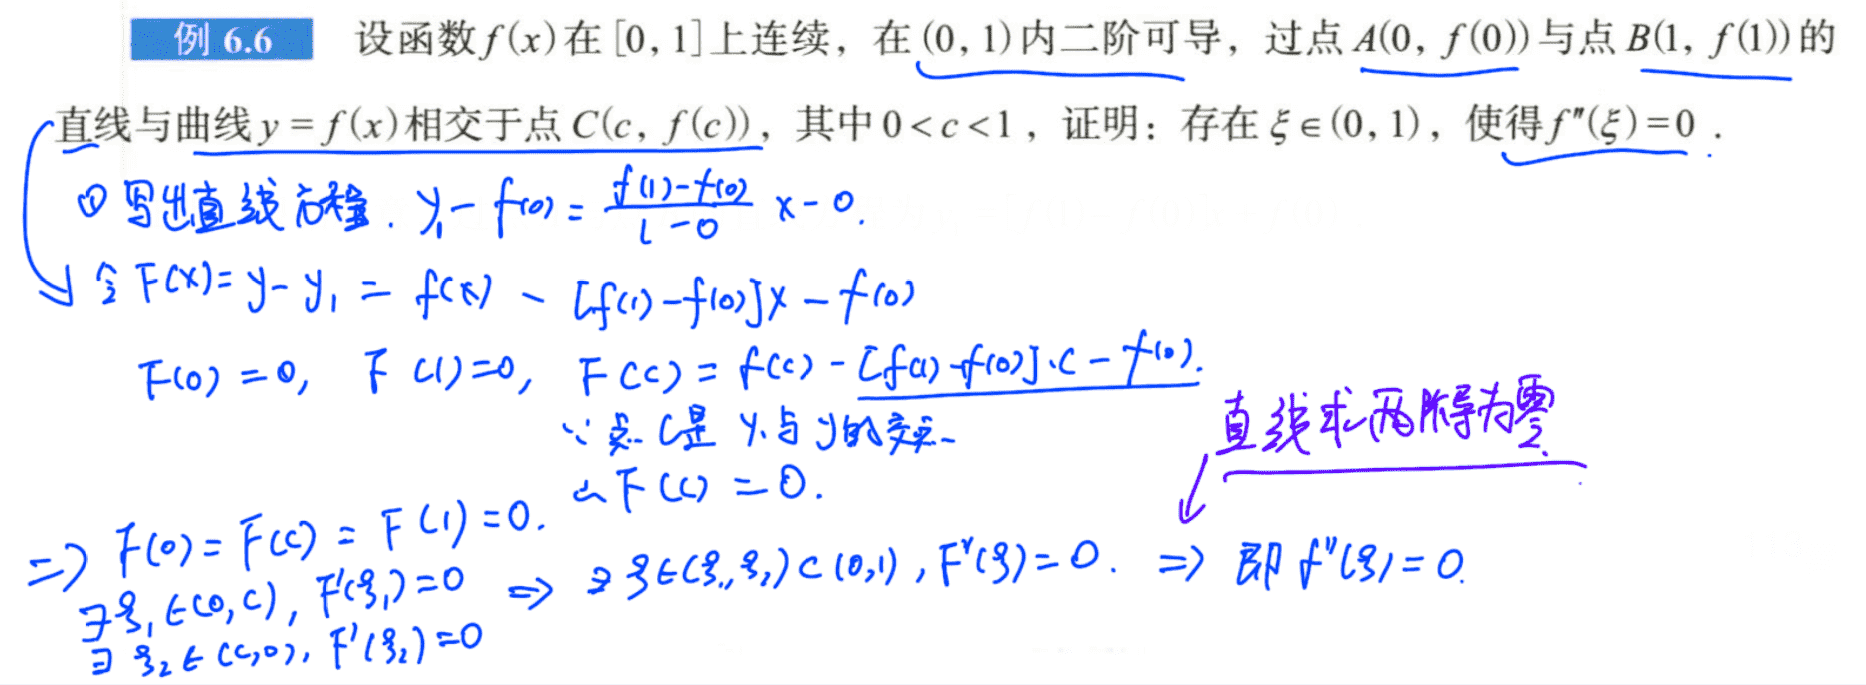 例 6.6 设函数f(x)在[0, 1]上连续，在(0, 1)内二阶可导，过点A(0, f(0))与点B(1, f(1))的
直线与曲线y=f(x)相交于点C(c, f(c))，其中0<c<1，证明：存在ξ∈(0, 1)，使得f″(ξ)=0．
① 写出直线方程. y₁-f(0)=\frac{f(1)-f(0)}{1-0} x-0.
令 F(x)=y-y₁ = f(x) - [f(1)-f(0)]x-f(0)
F(0)=0, F(1)=0, F(c)=f(c)-[f(1)-f(0)]·c-f(0).
∵ 点C是 y₁与y的交点
∴ F(c)=0.
直线求两阶导为零
⇒ F(0)=F(c)=F(1)=0.
∃ξ₁∈(0,c), F'(ξ₁)=0 ⇒ ∃ξ∈(ξ₁,ξ₂)⊂(0,1), F″(ξ)=0. ⇒ 即f″(ξ)=0.
∃ξ₂∈(c,0), F'(ξ₂)=0